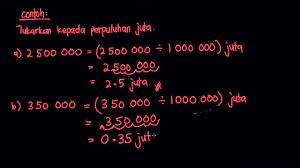 contoh:
Tukarkan kepada perpuluhan juta.
a) 2 500 000 = (2 500 000 ÷ 1 000 000) juta
= 2.500 000
= 2.5 juta
b) 350 000 = (350 000 ÷ 1000 000) juta
= 350 000
= 0.35 jut